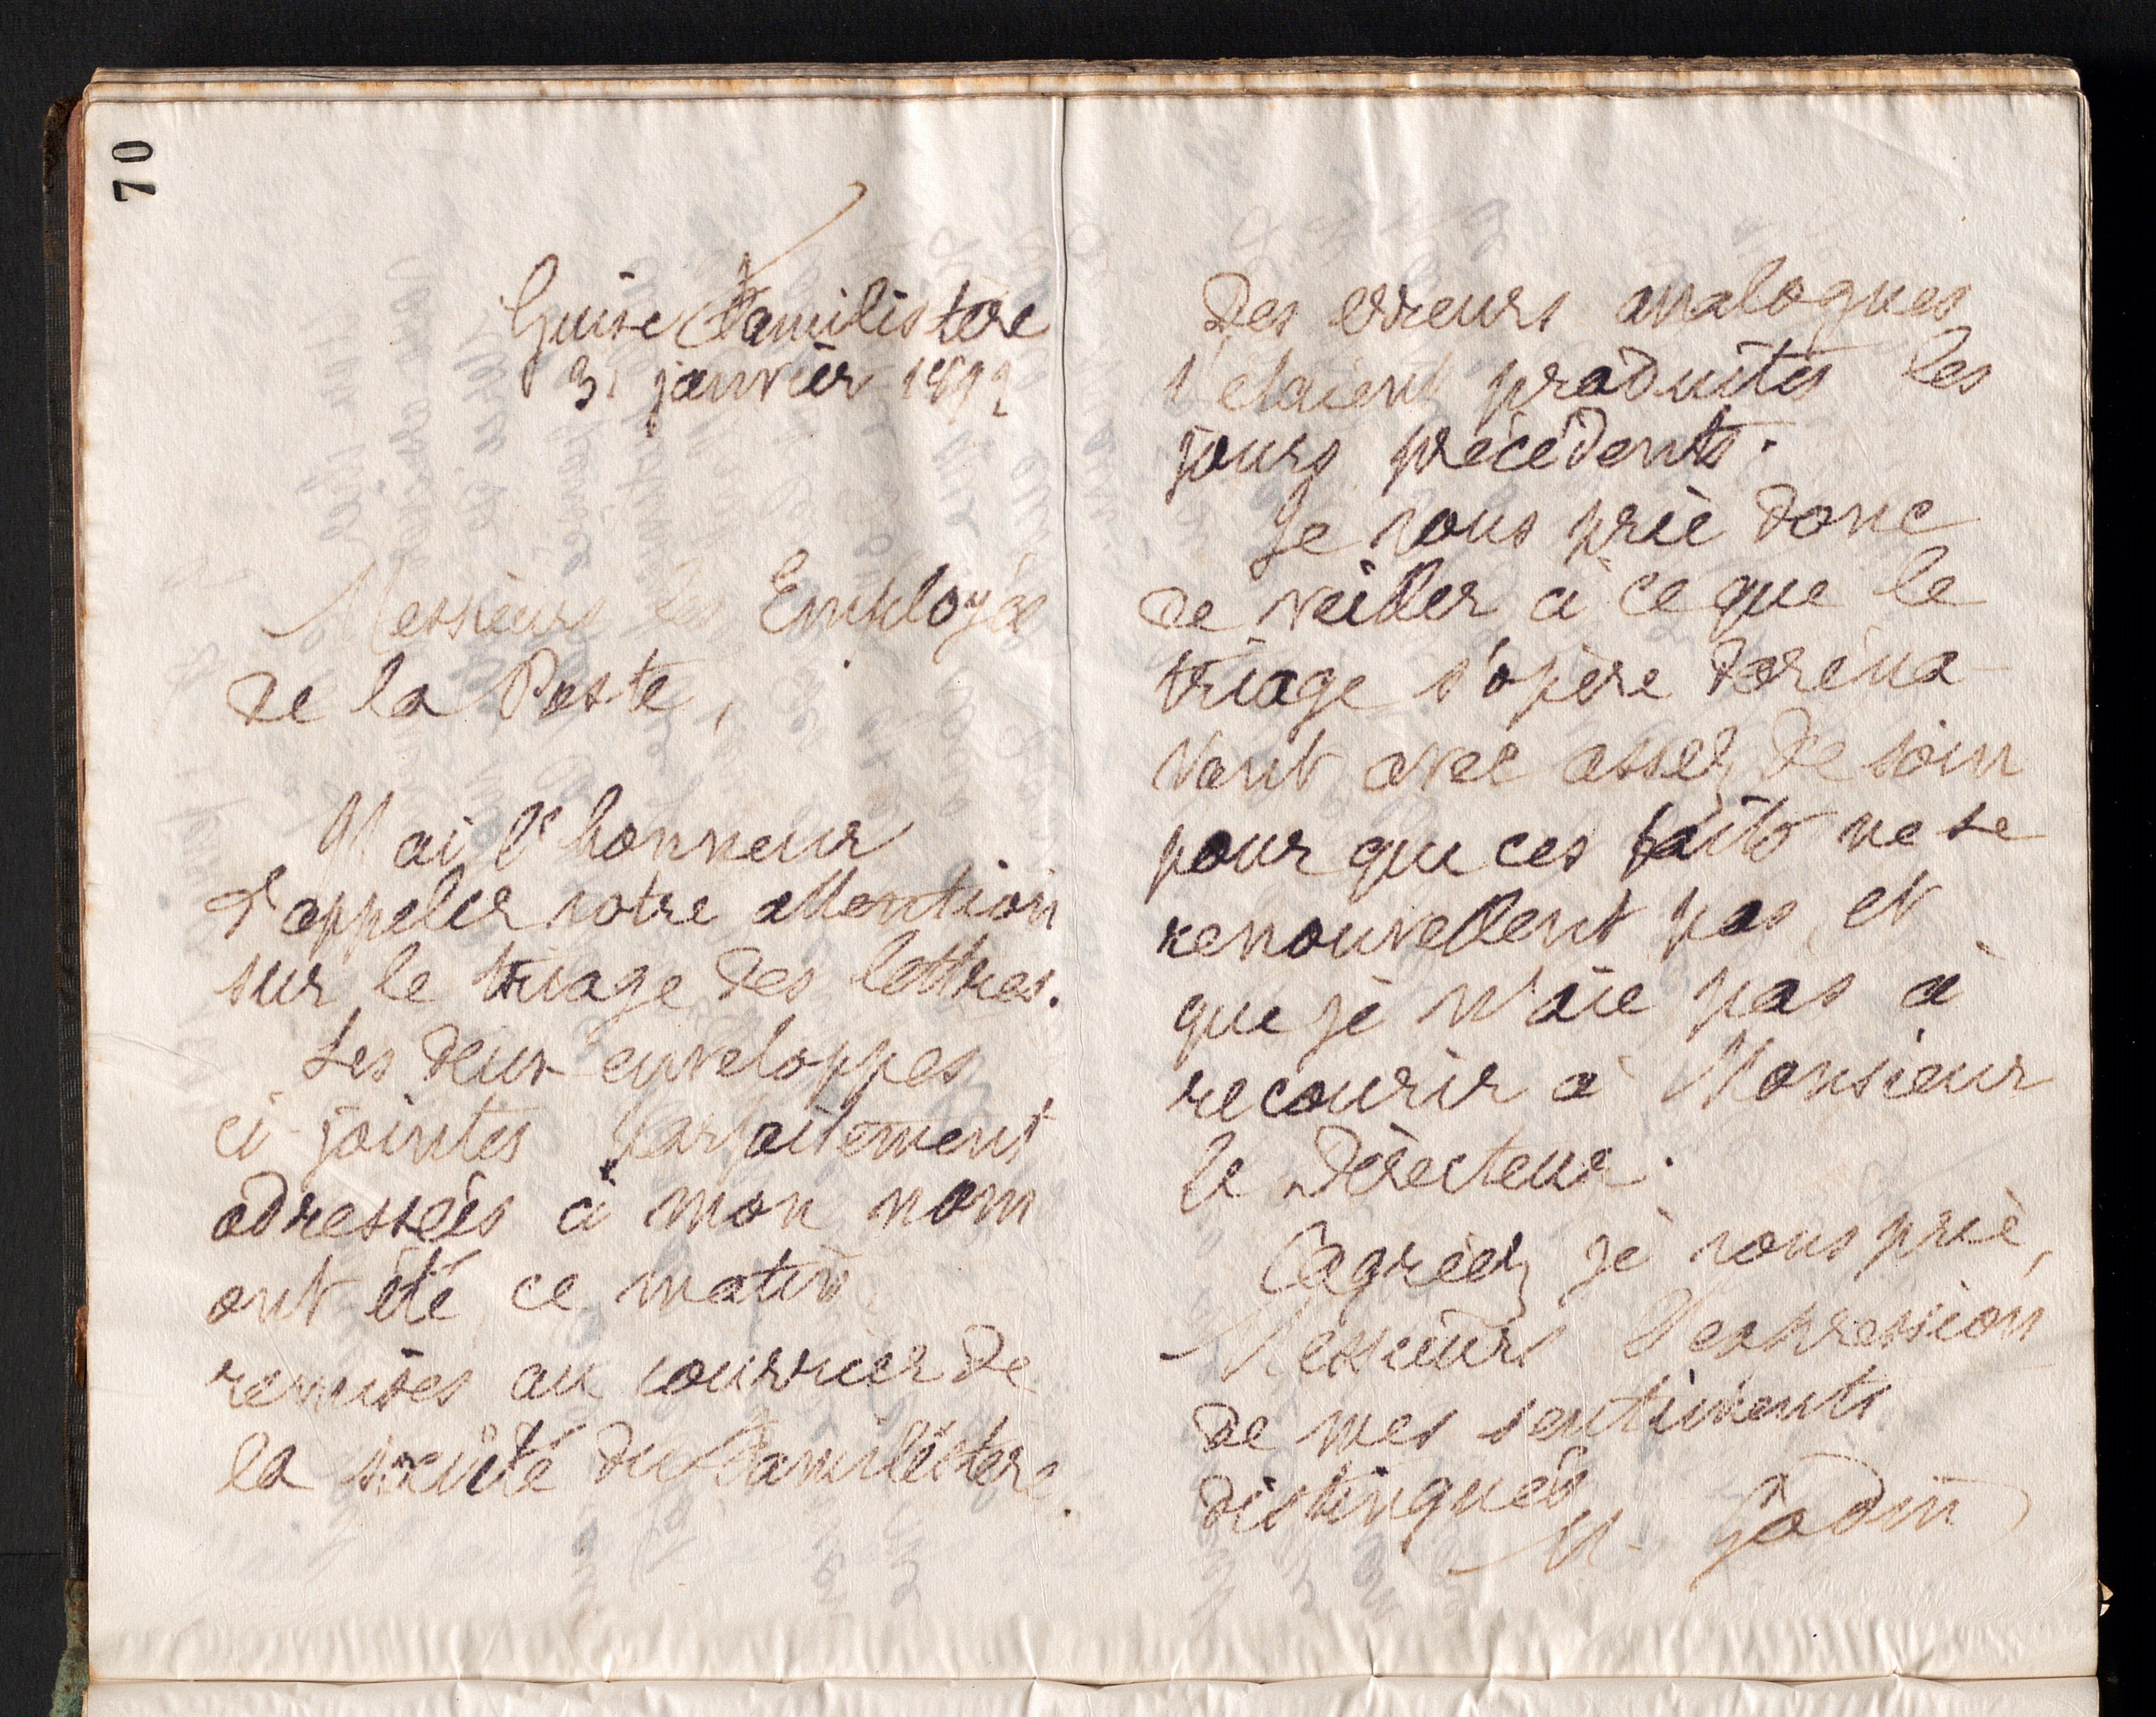 70
Guise Familistère
31 janvier 1892
Messieurs les Employés
de la Poste,
J'ai l'honneur
d'appeler votre attention
sur le triage des lettres.
Les deux enveloppes
ci-jointes parfaitement
adressées à mon nom
ont été ce matin
remises au courrier de
la société du Familistère.
Des erreurs analogues
s'étaient produites les
jours précédents.
Je vous prie donc
de veiller à ce que le
triage s'opère doréna-
vant avec assez de soin
pour que ces faits ne se
renouvellent pas, et
que je n'aie pas à
recourir à Monsieur
le Directeur.
Agréez, je vous prie,
Messieurs l'expression
de mes sentiments
distingués
M. Godin